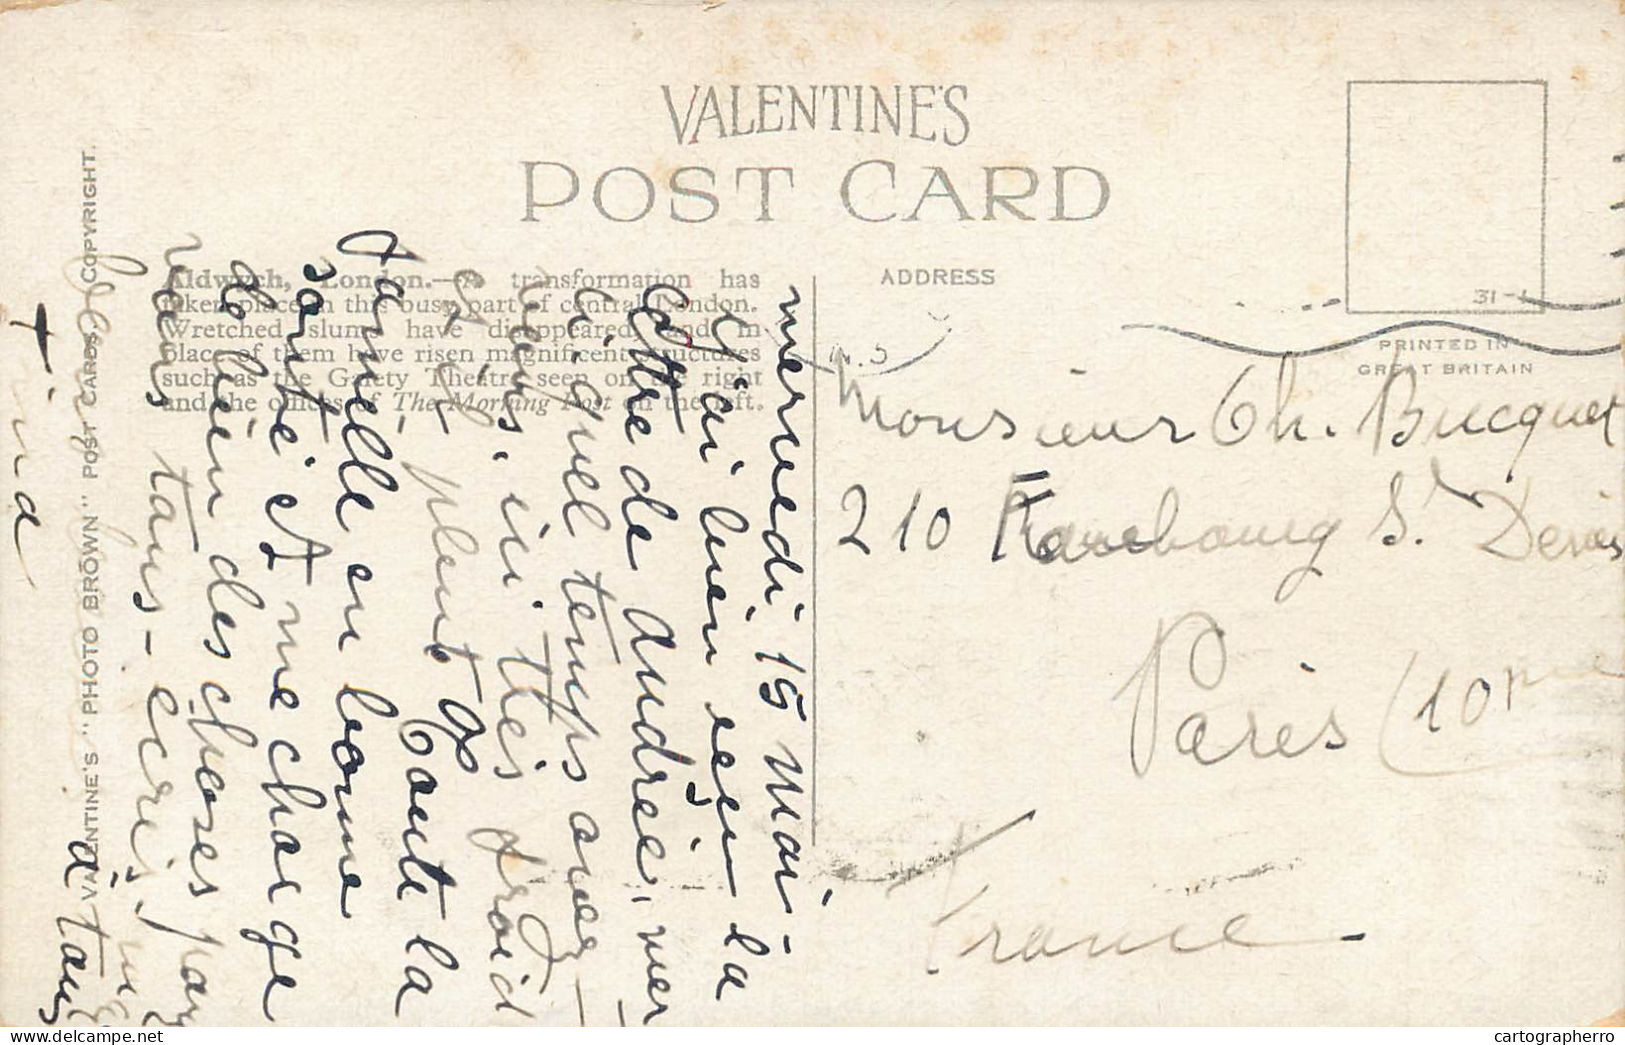 VALENTINE'S
POST CARD
ADDRESS
31-1
PRINTED IN
GREAT BRITAIN
VALENTINE'S "PHOTO BROWN" POST CARDS. COPYRIGHT.
Aldwych, London.—A transformation has
taken place in this busy part of central London.
Wretched slums have disappeared, and in
place of them have risen magnificent structures
such as the Gaiety Theatre seen on the right
and the offices of The Morning Post on the left.
mercredi 15 Mai -
J'ai bien reçu la
lettre de Andrée,
quel temps avez-
vous, ici très froid
et il pleut
Toute la
famille en bonne
santé et me charge
de bien des choses pour
vous tous - écris
à tous
Tina
Monsieur Ch. Bucquet
210 Faubourg St Denis
Paris (10me
France -
cartographerro